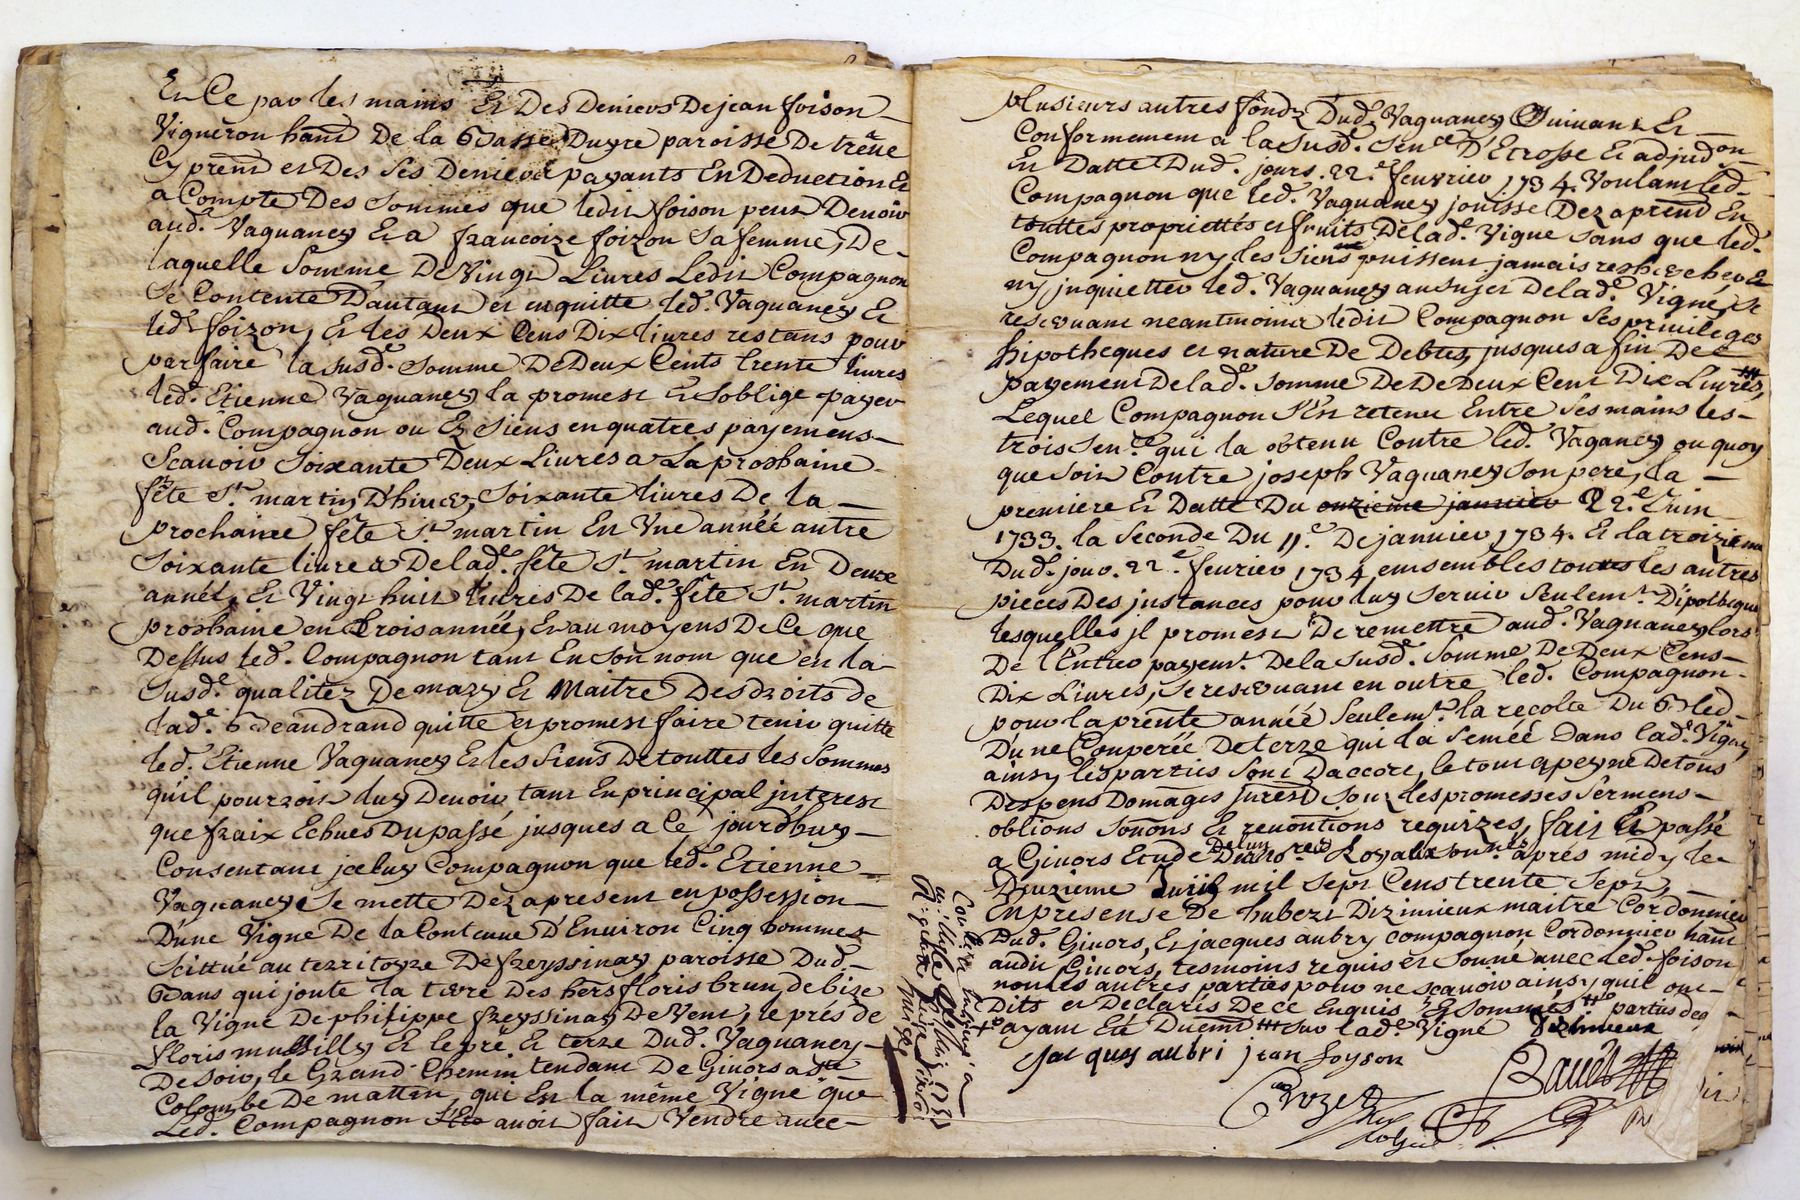 Et Ce par les mains Et Des Deniers De jean foison
Vigneron hant De la Basse Duyre paroisse De trêue
Cy prent et Des Ses Deniers payants En Deduction Et
a Compte Des Sommes que ledit foison peut Deuoir
aud. Vaguaney Et a francoize foizon Sa femme, De
laquelle Somme De Vingt Liures Ledit Compagnon
Se Contente D'autant et enquitte led. Vaguaney Et
led. foizon, Et les Deux Cens Dix liures restans pour
parfaire la susd.e Somme De Deux Cents trente liures
led. Etienne Vaguaney la promest Et Soblige payer
aud. Compagnon ou Es Siens en quatres payemens
Scauoir Soixante Deux Liures a La prochaine
fête S.t martin D'hiuer, Soixante liures De la
prochaine fête S.t martin En Vne année autre
Soixante liures De lad.e fête S.t martin En Deux
année, Et Vingt huit liures De lad.e fête S.t martin
prochaine en trois année, Et au moyens De Ce que
Dessus led. Compagnon tant En Son nom que en la
susd.e qualitez De mary Et Maitre Des droits de
lad.e Beaudrand quitte et promest faire tenir quitte
led. Etienne Vaguaney Et les Siens De touttes les Sommes
qu'il pourroit luy Deuoir tant En principal jnterest
que fraix Echues Du passé jusques a Ce jourdhuy
Consentant jceluy Compagnon que led. Etienne
Vaguaney Se mette Dez apresent en possession
D'une Vigne De la Contenue D'Enuiron Cinq hommes
Scittué au territoyre De freyssinay paroisse Dud.
Bans qui joute la terre Des hers floris brun, de bize
la Vigne De philippe freyssinay De Vent, le prés de
floris mussilly Et le pré Et terre Dud. Vaguaney
De Soir, le Grand Chemin tendant De Giuors a S.te
Colombe De mattin, qui Est la même Vigne que
Led. Compagnon auoit fait Vendre auec
plusieurs autres fondz Dud. Vaguaney Suiuant Et
Conformement a la Susd. Sen.ce D'Etrosse Et adjud.on
En Datte Dud. jours 22.e feurier 1734. Voulant led.
Compagnon que led. Vaguaney jouisse Dez aprent En
touttes propriettés et fruits De lad.e Vigne Sans que led.
Compagnon ny les Siens puissent jamais rechercher Et
ny jnquietter led. Vaguaney au Sujet De lad.e Vigne, Se
reseruant neantmoins ledit Compagnon Ses priuileges
hipotheques et nature De Debtes, jusques a fin De
payement De lad.e Somme De Deux Cent Dix Liures,
Lequel Compagnon S'Est retenu Entre Ses mains les
trois Sen.ce qui la obtenu Contre led. Vaganey ou quoy
que Soit Contre joseph Vaguaney Son pere, la
premiere Et Datte Du onzieme januier 22.e Juin
1733. la Seconde Du 11.e De januier 1734. Et la troizieme
Dud. jour 22.e feurier 1734, emsembles touttes les autres
pieces Des jnstances pour luy Seruir Seulem.t D'ipotheque
lesquelles jl promest De remettre aud. Vaguaney lors
De l'Entier payem.t De la Susd.e Somme De Deux Cens
Dix Liures, Se reseruant en outre led. Compagnon
pour la prente année Seulem.t la recolte Du Bled
D'une Couperée De terre qui la Semée Dans lad.e Vigne,
ainsy les parties Sont D'accort, le tout apeyne De tous
Despens Domages jnrest Souz les promesses Sermens
oblions Soñons Et renontions requizes, fait Et passé
a Giuors Etude De luns no.res Royaux apres midy le
Deuzieme Juin mil Sept Cens trente Sept,
En presense De hubert Dizimieux maitre Cordonnier
Dud. Giuors, Et jacques aubry compagnon Cordonnier hant
audit Giuors, tesmoins requis et Soñné auec led. foison
non les autres parties pour ne Scauoir ainsy quil ont
Dits et Declarés De Ce Enquis Et Sommés parties
ayant Eté Duemt sur lad.e Vigne Dizimieux
jac ques aubri jean foyson